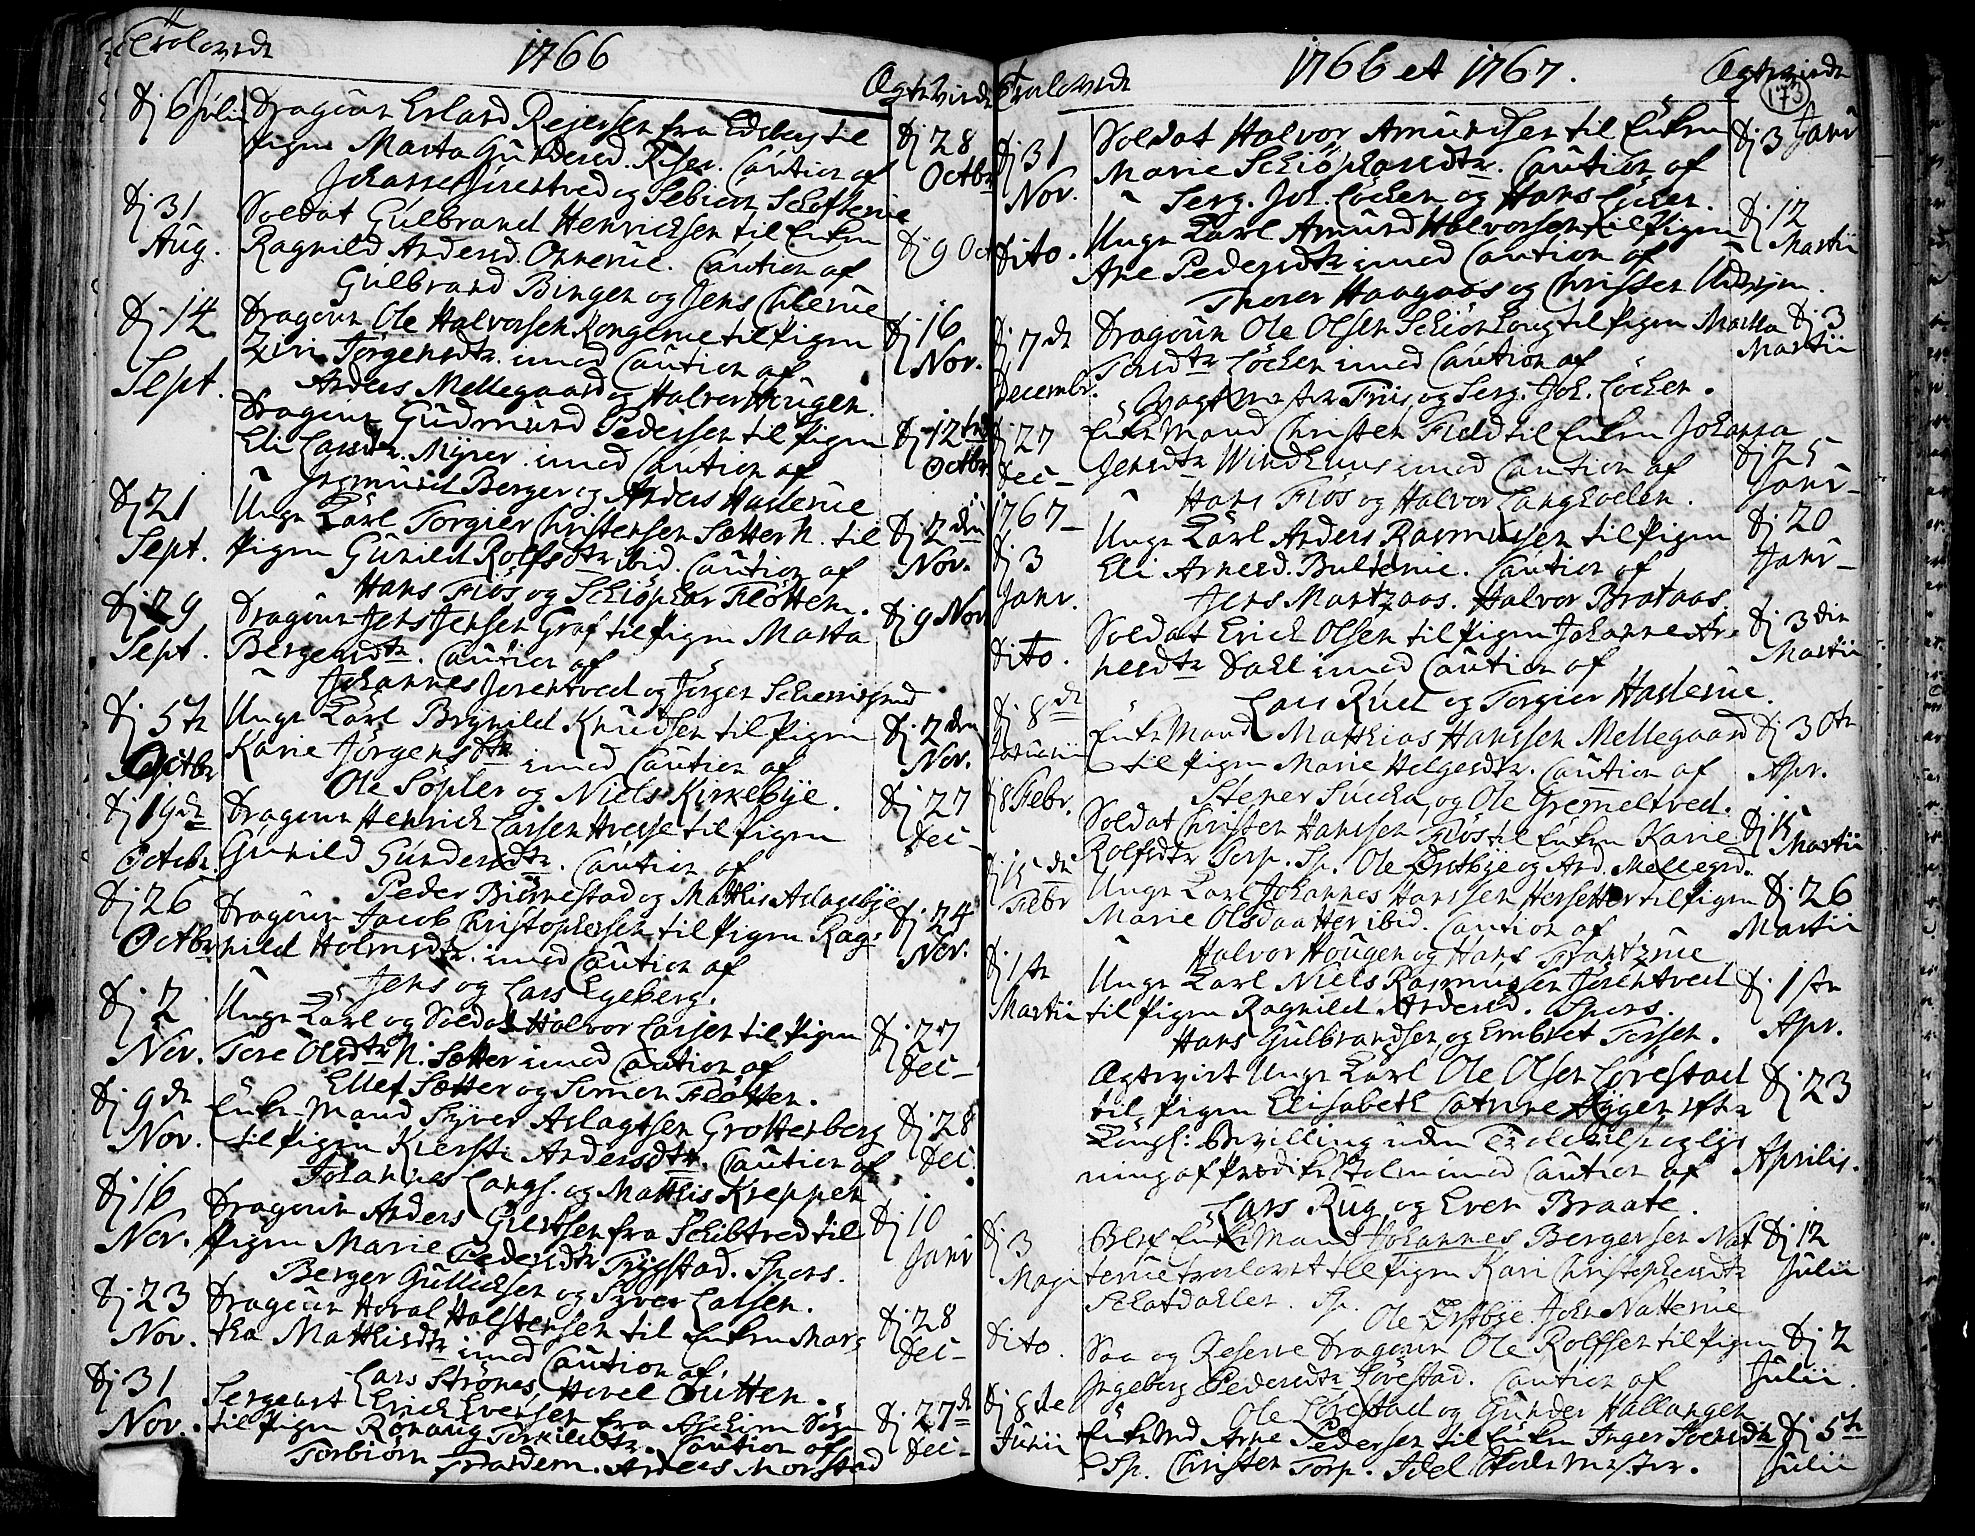 Trolovede
1766
Ægteviede
Dj 6 Julii
Dragoun Erland Rejersen fra Edsberg til
Pigen Marta Gundersd. Riser. Caution af
Johannes Jørentved og Sebiørn Schofterue
Dj 28 Octbr
Dj 31 Aug.
Soldat Gulbrand Henrichsen til Enken
Ragnild Andersd. Onnerue. Caution af
Gulbrand Bingen og Jens Ihlerue
Dj 9 Oct
Dj 14 Sept.
Dragoun Ole Halvorsen Kongerue til Pigen
Ziri Jørgensdtr. imod Caution af
Anders Mellegaard og Halvor Hougen.
Dj 16 Nov.
Dragoun Gudmund Pedersen til Pigen
Eli Larsdtr. Myrer imod Caution af
Gudmund Berger og Anders Haslerue
Dj 12te Octbr
Dj 21 Sept.
Unge Karl Torgier Christensen Sætter N. til
Pigen Gunild Rolfsdtr ibid. Caution af
Hans Fiøs og Schiøphar Fløtten.
Dj 2den Nov.
Dj 29 Sept.
Dragoun Jens Jensen Graf til Pigen Marta
Bergersdtr. Caution af
Johannes Jørentved og Jørgen
Dj 9 Nov
Dj 5te Octbr
Unge Karl Brynild Knudsen til Pigen
Karie Jørgensdtr imod Caution af
Ole Søpler og Niels Kirkebye.
Dj 2den Nov.
Dj 19de Octobr.
Dragoun Henrich Larsen Hvesse til Pigen
Gunild Gundersdtr. Caution af
Peder Biørnestad og Mattis Aslagebye
Dj 27 Dec
Dj 26 Octbr
Dragoun Jacob Christophersen til Pigen Rag-
nild Holmsdtr. imod Caution af
Jens og Lars Egeberg.
Dj 24 Nov.
Dj 2 Nov.
Unge Karl og Soldat Halvor Larsen til Pigen
Tore Olsdtr N. Sætter imod Caution af
Ellef Sætter og Simon Fløtten.
Dj 27 Dec
Dj 9de Nov.
Enke-Mand Syver Aslagsen Grotterberg
til Pigen Kiersti Andersdtr. Caution af
Johannes Langs. og Mattis Kreppen
Dj 28 Dec.
Dj 16 Nov.
Dragoun Anders Giertsen fra Schibtved til
Pigen Marie Pedersdtr Trygstad. Spons.
Berger Gullichsen og Syver Larsen.
Dj 10 Janr
Dj 23 Nov.
Dragoun Horal Halstensen til Enken Mar-
tha Mathisdtr imod Caution af
Lars Strønes, Hovel Outten.
Dj 28 Dec
Dj 31 Nov.
Sergeant Erich Evensen fra Aschim Sogn
til Pigen Rønaug Torkildsdtr. Caution af
Torbiørn Trandem. Anders Morstad
Dj 27de Dec
Trolovede
1766 et 1767.
Ægteviede
173
Dj 31 Nov.
Soldat Halvor Amundsen til Enken
Marie Schiøphansdtr. Caution af
Serg. Joh. Løcken og Hans Løcken.
Dj 3 Janr
Dito.
Unge Karl Amund Halvorsen til Pigen
Ane Pedersdtr imod Caution af
Thorer Haagaas og Christen
Dj 12 Martii
Dj 7de Decembr.
Dragoun Ole Olsen Schiønhoug til Pigen Martha
Torsdtr Løcken imod Caution af
Vagtmester Friis og Serg. Joh. Løcken.
Dj 3 Martii
Dj 27 Dec
Enke Mand Christen Field til Enken Johanna
Jensdtr Windhuus imod Caution af
Hans Fiøs og Halvor Langholen.
Dj 25 Janr
1767
Dj 3 Janr.
Unge Karl Anders Rasmussen til Pigen
Eli Arnesd. Bulterue. Caution af
Jens Mortzaas. Halvor Brataas.
Dj 20 Janr
Dito.
Soldat Erich Olsen til Pigen Johanne Ar-
nesdtr Dahl imod Caution af
Lars Ruch og Torgier Haslerue.
Dj 3die Martii
Dj 8de Januarii
Enke Mand Matthias Hanssen Mellegaard
til Pigen Marie Helgesdtr. Caution af
Stener Sucka og Ole Gremeltved.
Dj 30te Apr.
Dj 8 Febr.
Soldat Christen Hanssen Fiøs til Enken Karie
Rolfsdtr Torp. Sp. Ole Østbye og And. Mellegrd.
Dj 15 Martii
Dj 15de Febr
Unge Karl Johannes Hanssen Hersetter til Pigen
Marie Olsdaatter ibid. Caution af
Halvor Hougen og Hans Frantzrue
Dj 26 Martii
Dj 1ste Martii
Unge Karl Niels Rasmussen Jørentved
til Pigen Ragnild Andersd. Spons.
Hans Gulbrandsen og Embret Torsen.
Dj 1ste Apr.
Ægteviet Unge Karl Ole Olsen Løvestad
til Pigen Elisabeth Catrine Bygen efter
Kongl: Bevilling uden Trolovelse og lys-
ning af Prædike Stolen imod Caution af
Lars Rug og Even Braate.
Dj 23 Aprilis.
Dj 3 Maji
Blef Enke Mand Johannes Bergersen Nat-
terue trolovet til Pigen Kari Christophersdtr
Schatdahlen. Sp. Ole Østbye. John Natterue
Dj 12 Julii
Dito.
Saa og Reserve Dragoun Ole Rolfsen til Pigen
Ingeborg Pedersdtr Løvestad. Caution af
Ole Løvestad og Gunder Hallangen
Dj 2 Julii
Dj 8de Junii
Enke Md Arne Pedersen til Enken Inger Svensdtr
Sp. Christen Torp. Idel Skolemester.
Dj 5te Julii